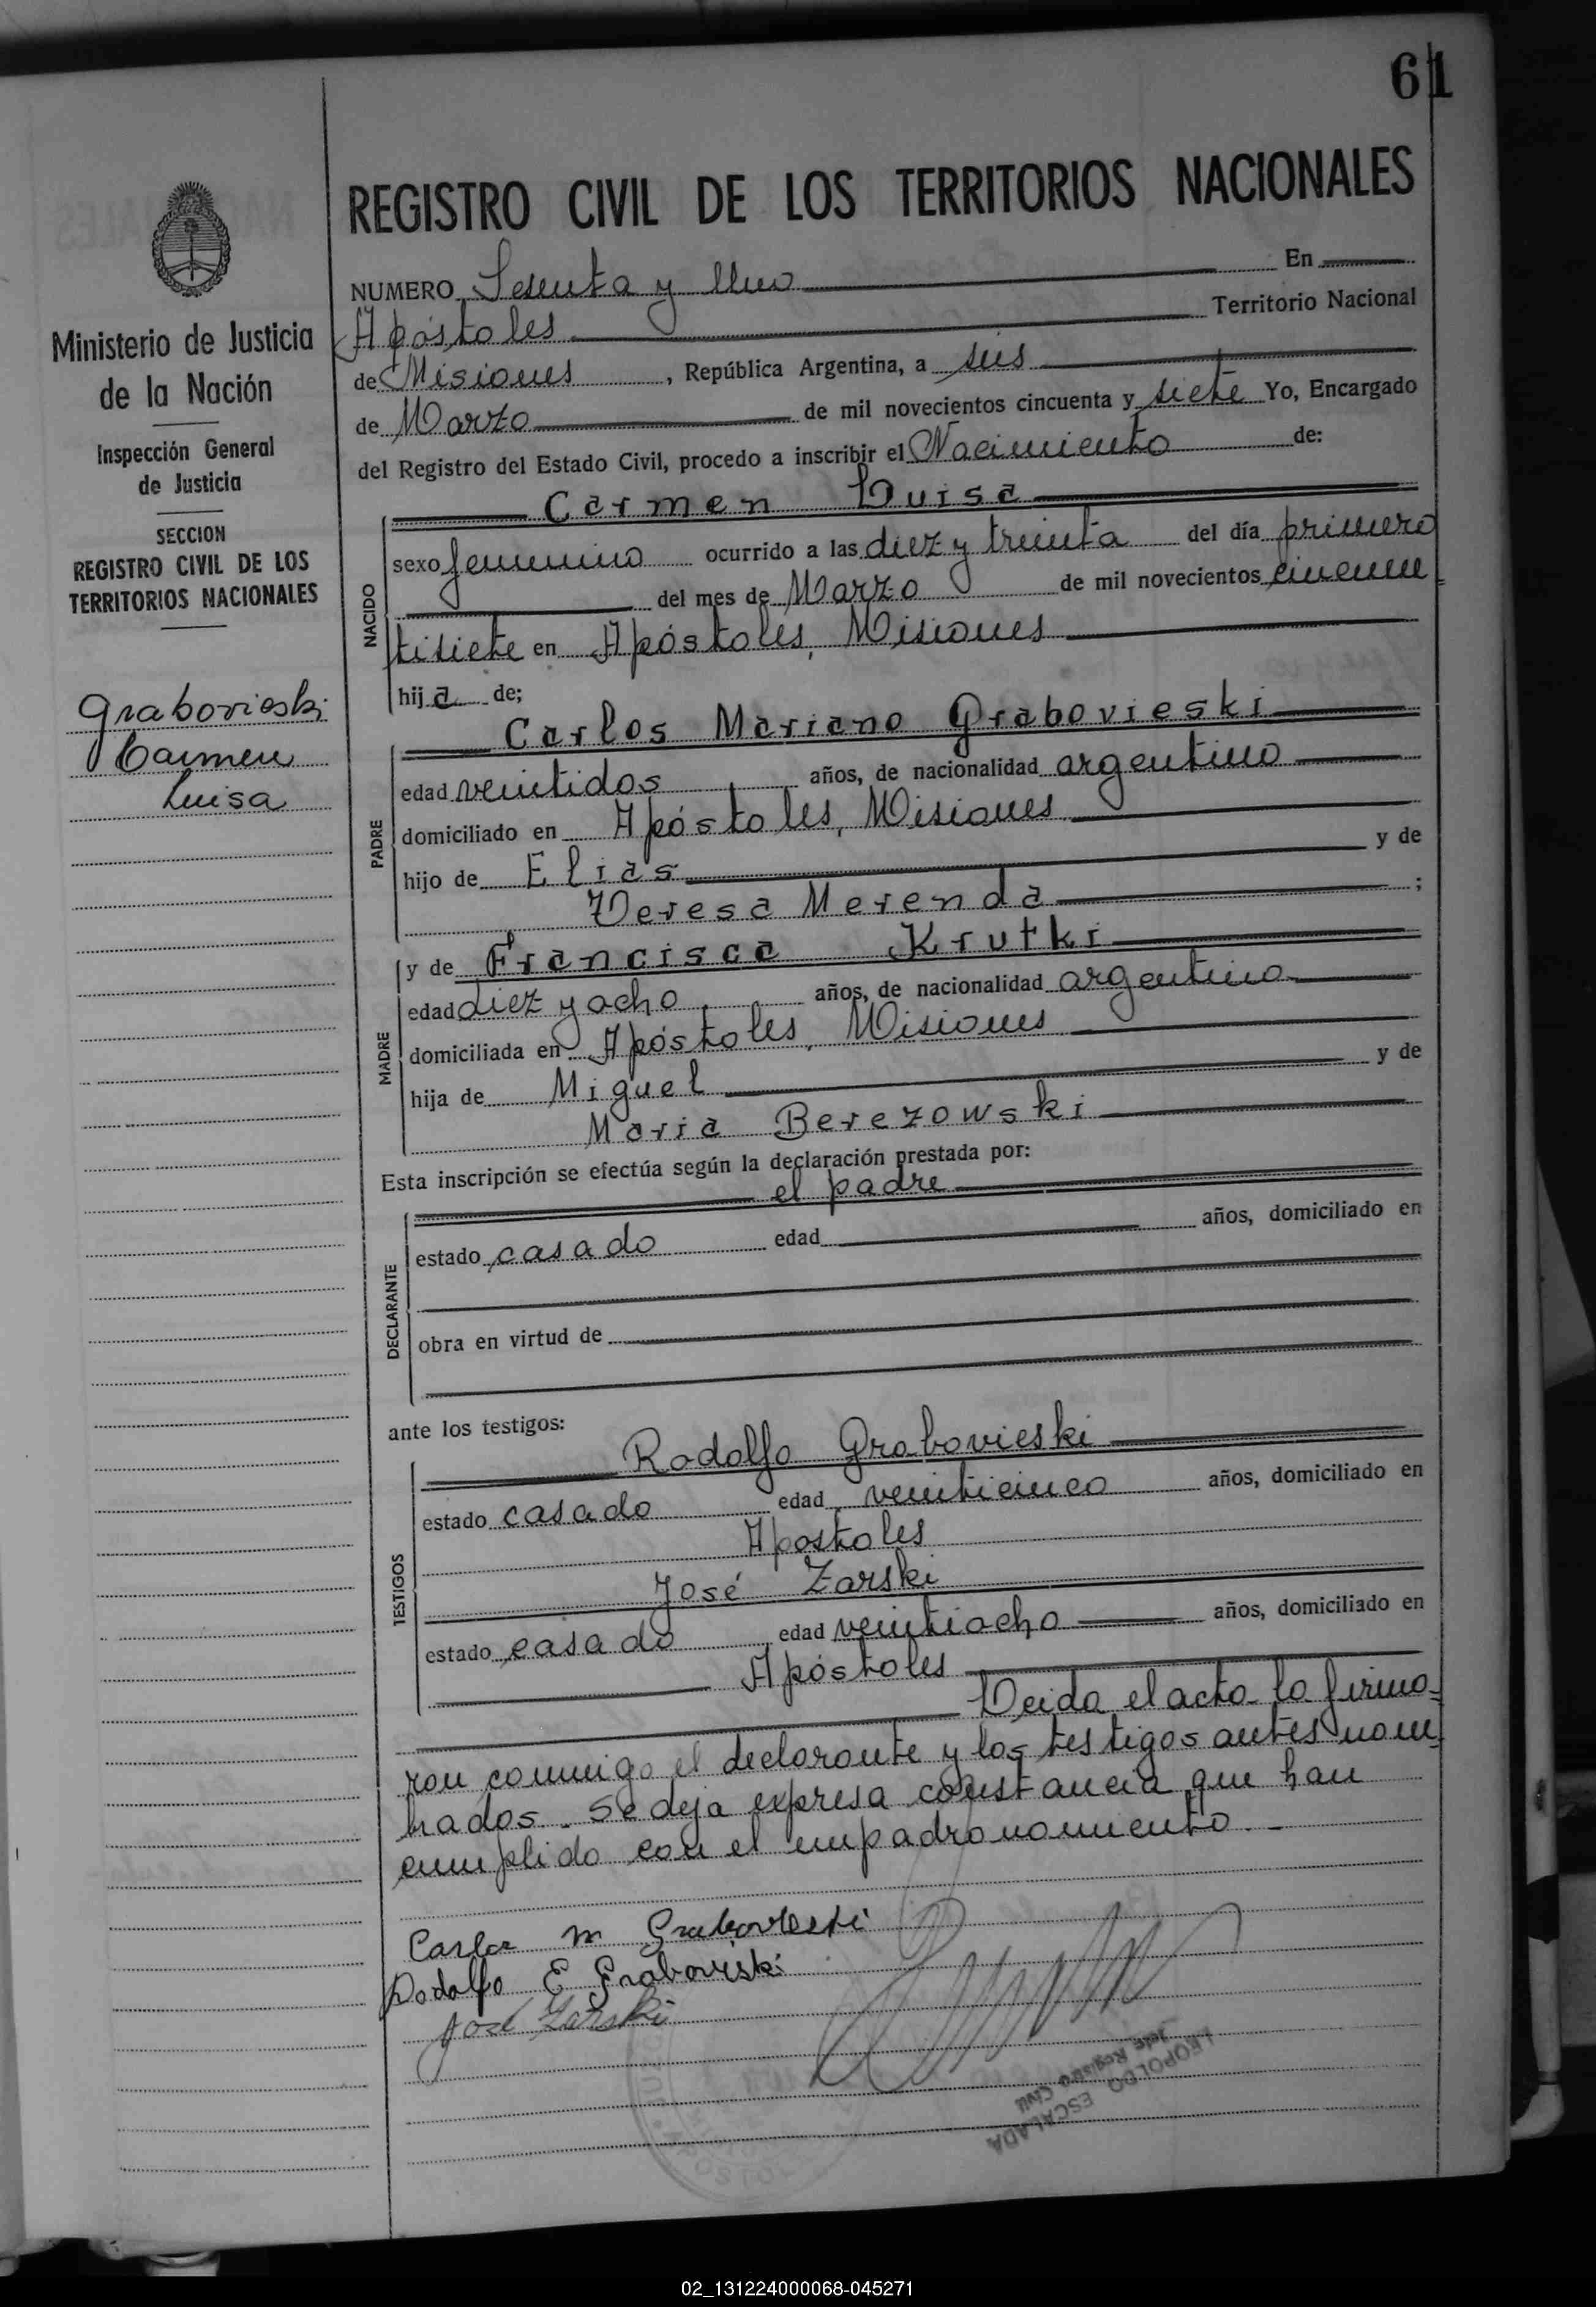 61
REGISTRO CIVIL DE LOS TERRITORIOS NACIONALES
Ministerio de Justicia
de la Nación
Inspección General
de Justicia
SECCION
REGISTRO CIVIL DE LOS
TERRITORIOS NACIONALES
Grabovieski
Carmen
Luisa
NUMERO Sesenta y Uno En
Apóstoles Territorio Nacional
de Misiones, República Argentina, a seis
de Marzo de mil novecientos cincuenta y siete Yo, Encargado
del Registro del Estado Civil, procedo a inscribir el Nacimiento de:
NACIDO
Carmen Luisa
sexo femenino ocurrido a las diez y treinta del día primero
del mes de Marzo de mil novecientos cincuen
tisiete en Apóstoles, Misiones
hija de;
PADRE
Carlos Mariano Grabovieski
edad veintidos años, de nacionalidad argentino
domiciliado en Apóstoles, Misiones
hijo de Elias y de
Teresa Merenda ;
MADRE
y de Francisca Krutki
edad diez y ocho años, de nacionalidad argentina
domiciliada en Apóstoles, Misiones
hija de Miguel y de
Maria Berezowski
Esta inscripción se efectúa según la declaración prestada por:
DECLARANTE
el padre
estado casado edad años, domiciliado en
obra en virtud de
ante los testigos:
TESTIGOS
Rodolfo Grabovieski
estado casado edad veinticinco años, domiciliado en
Apostoles
José Zarski
estado casado edad veintiocho años, domiciliado en
Apóstoles
Leida el acta la firma=
ron conmigo el declarante y los testigos antes nom=
brados. Se deja expresa constancia que han
cumplido con el empadronamiento.-
Carlos M Grabovieski
Rodolfo E Graboviski
José Zarski
LEOPOLDO ESCALADA
Jefe Registro Civil
02_131224000068-045271